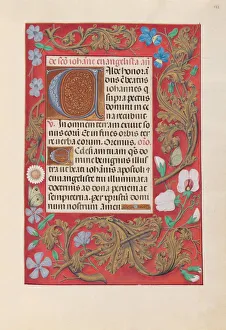 de sco iohane euangelista añ
Valde honor
andus ẽ beatus
iohannes q
supra pectus domini in ce
na recubuit
V. In omnem terram exiuit so
nus eorũ Et in fines orbis ter
re verba eorum. Deus. orõ
Ecclesiam tuam q̃s do
mine benignus illus
tra ut beati iohannis apostoli et
euangeliste tui illuminata
doctrinis ad dona perueniat se
mpiterna. per xpistum domi
num nostrum amen